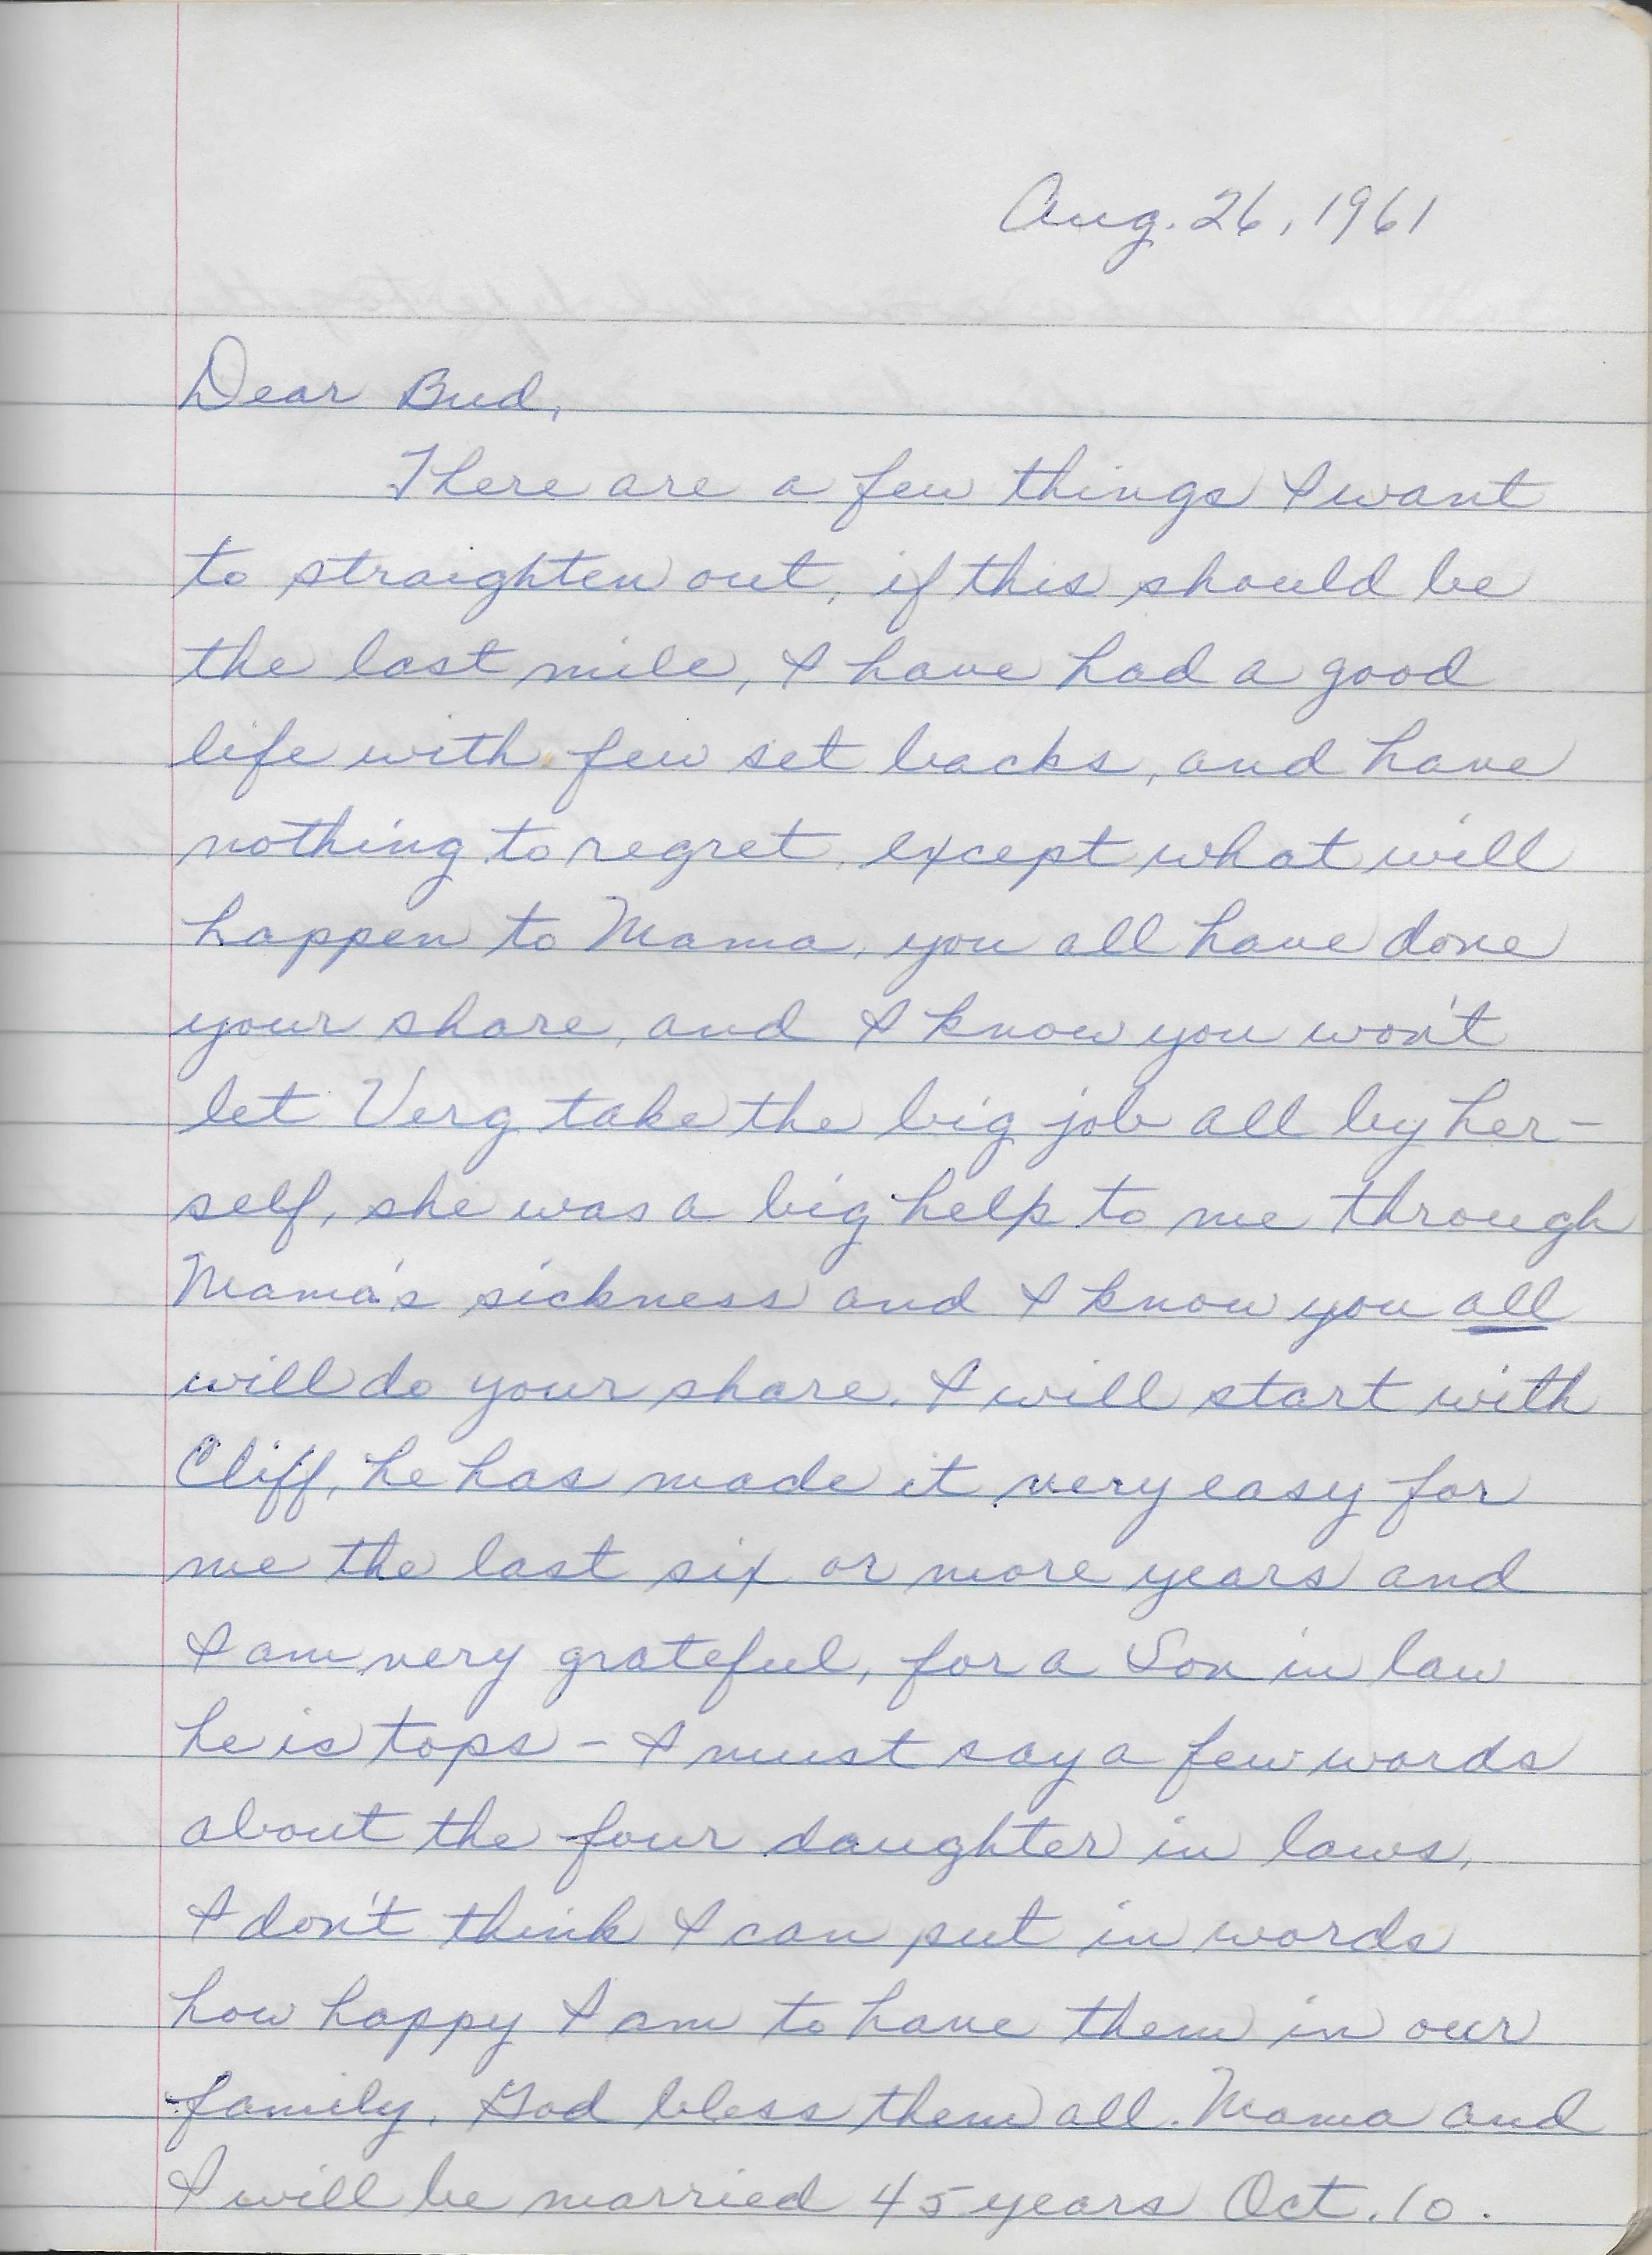 Aug. 26, 1961
Dear Bud,
There are a few things I want
to straighten out, if this should be
the last mile, I have had a good
life with few set backs, and have
nothing to regret, except what will
happen to Mama, you all have done
your share, and I know you won't
let Verg take the big job all by her-
self, she was a big help to me through
Mama's sickness and I know you all
will do your share. I will start with
Cliff, he has made it very easy for
me the last six or more years and
I am very grateful, for a Son in law
he is tops - I must say a few words
about the four daughter in laws,
I don't think I can put in words
how happy I am to have them in our
family. God bless them all. Mama and
I will be married 45 years Oct. 10.